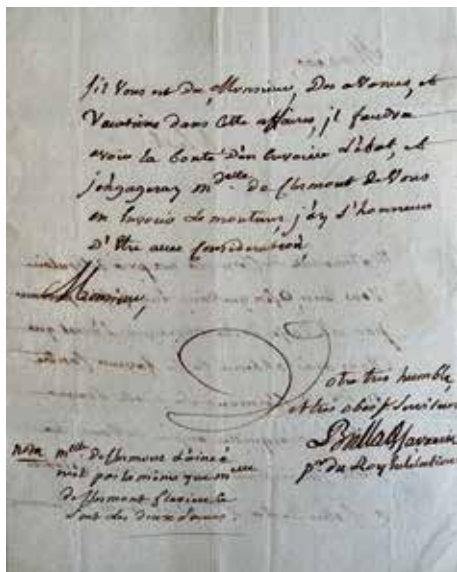 S'il vous est du, Monsieur, Des avances, et
Vacations dans Cette affaire, il faudra
avoir la bonté D'en Envoier L'état, et
j'engageray m.elle de Clermont de Vous
en Envoier Le montant, j'ay L'honneur
D'Etre avec Consideration
Monsieur,
Votre très humble,
et très obéist Serviteur
pr. du Roy
nota melle de Clermont L'ainée
n'est pas la même que melle
de Clermont
Sont des deux